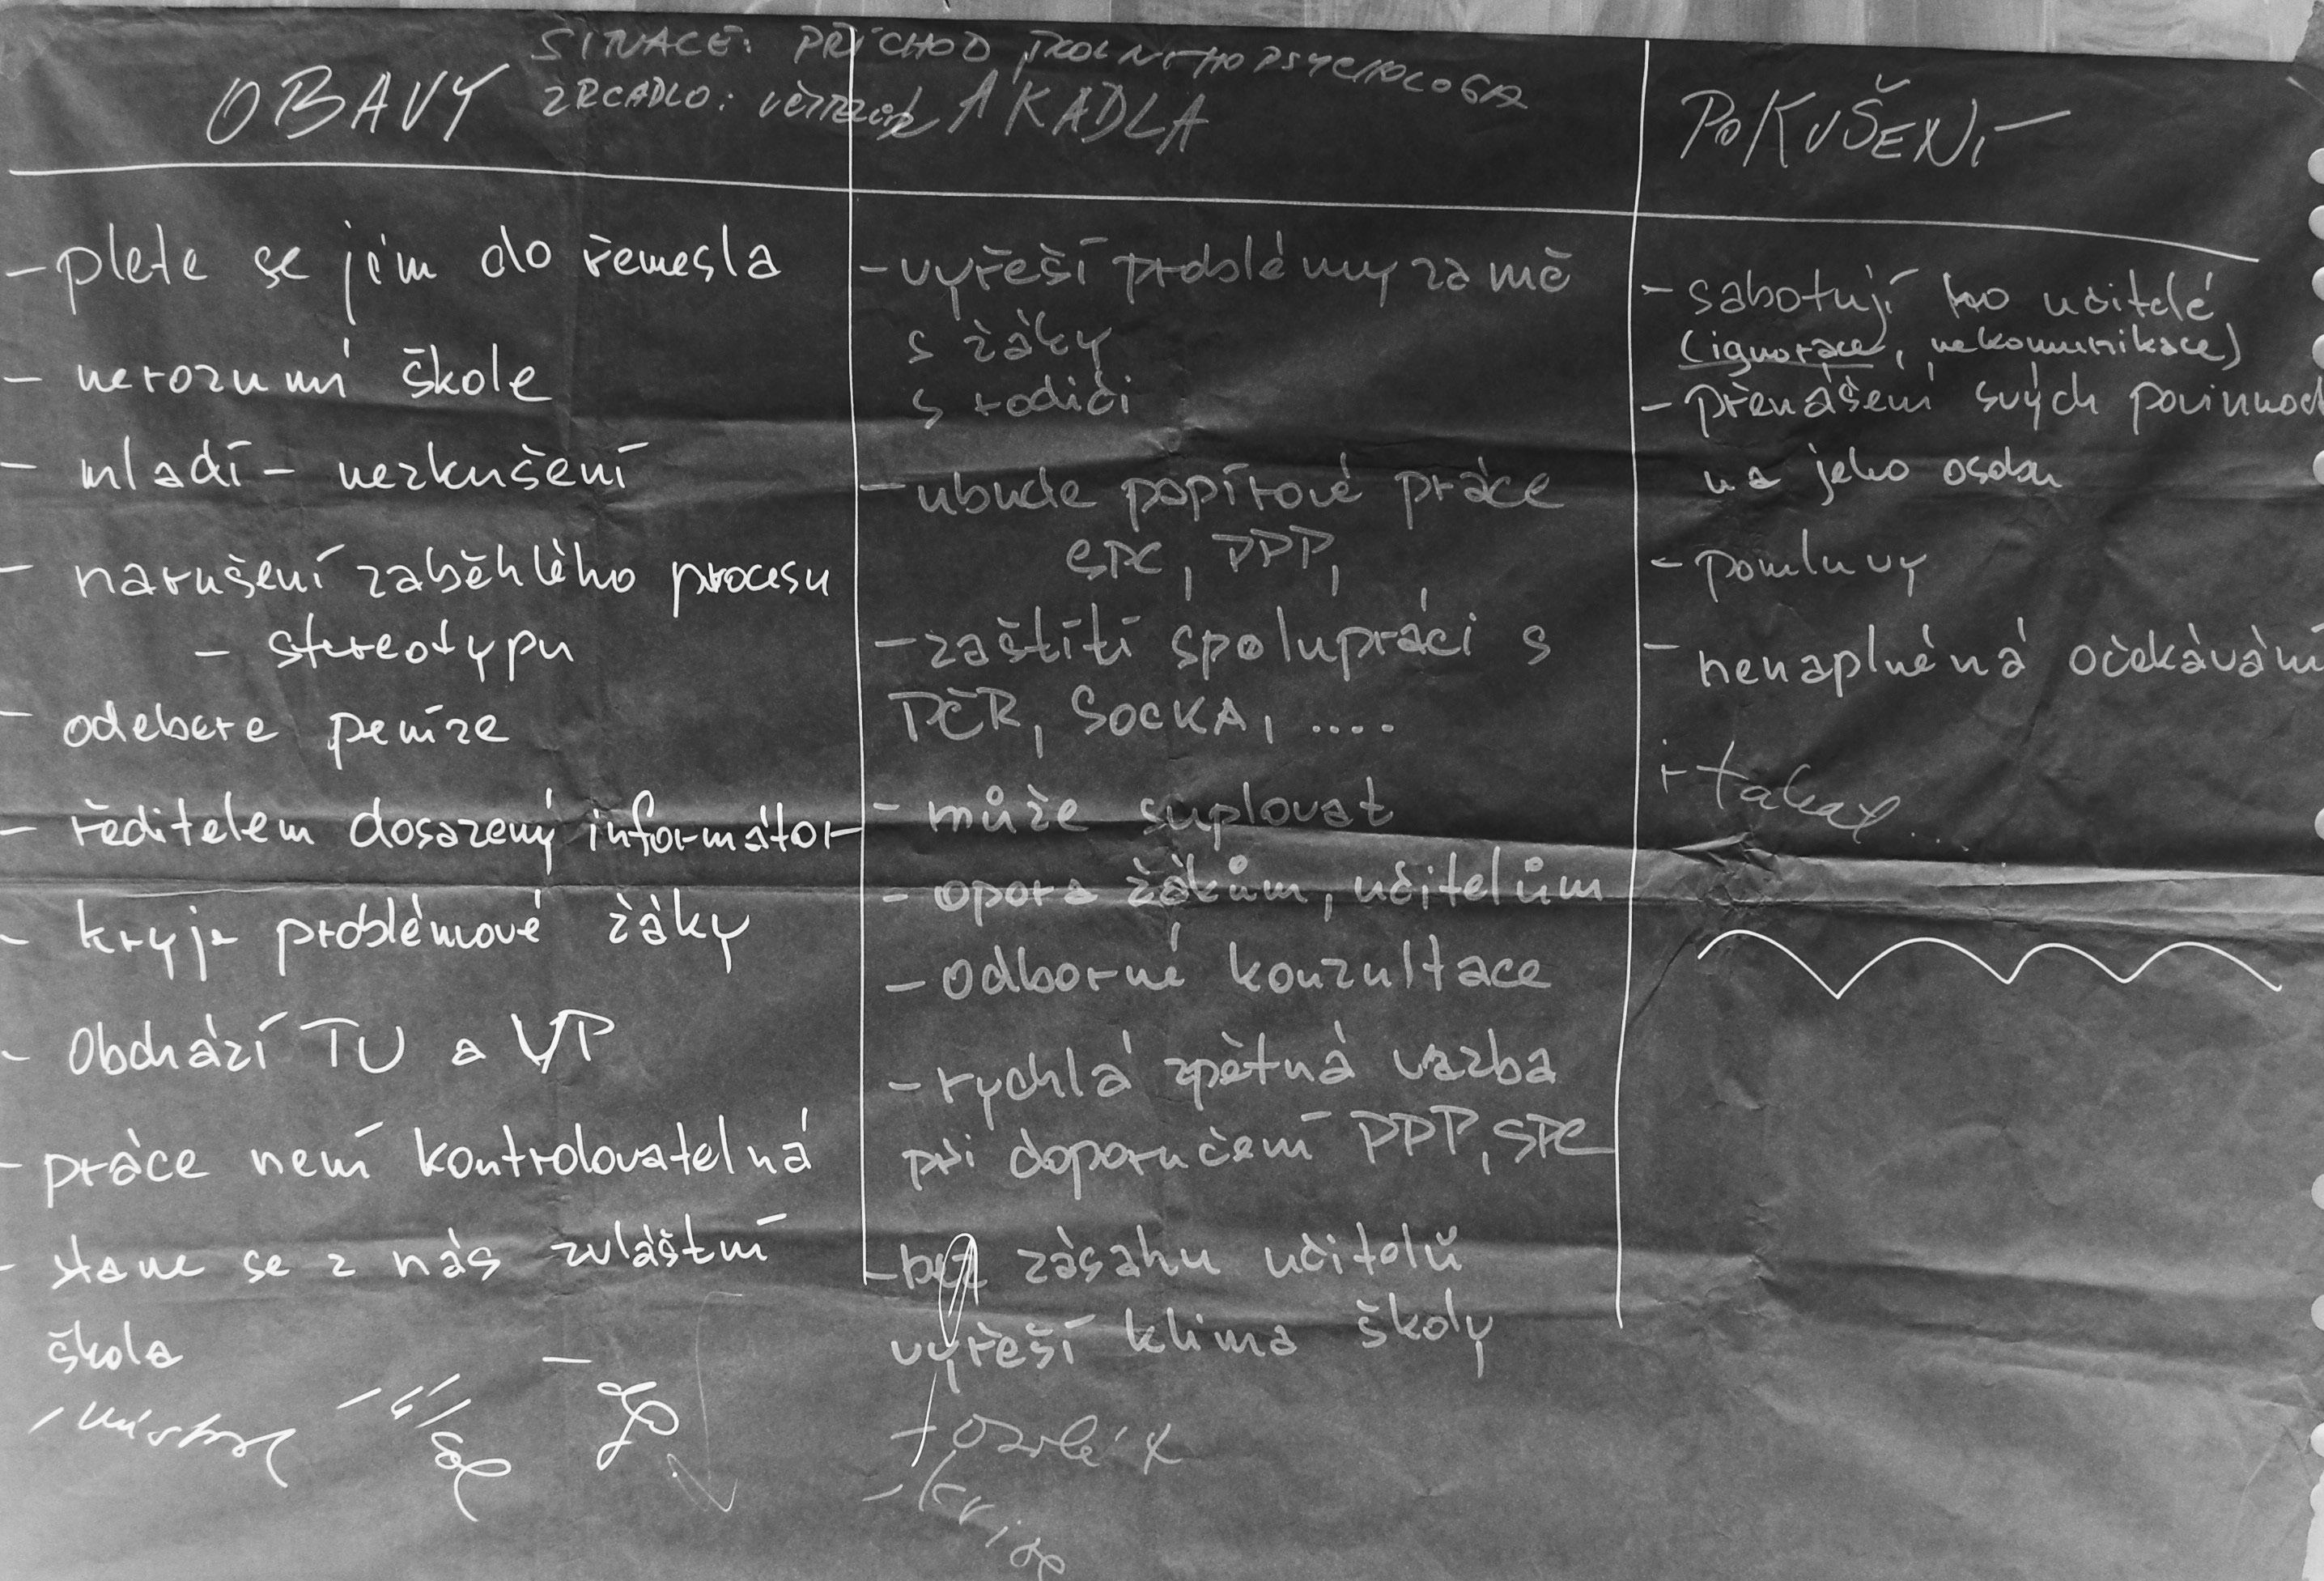 SITUACE: PŘÍCHOD ŠKOLNÍHO PSYCHOLOGA
ZRCADLO:
OBAVY
- plete se jim do řemesla
- nerozumí škole
- mladí - nezkušení
- narušení zaběhlého procesu
- stereotypu
- odebere peníze
- ředitelem dosazený informátor
- kryje problémové žáky
- Obchází TU a VP
- práce není kontrolovatelná
- stane se z nás zvláštní
škola
LÁKADLA
- vyřeší problémy za mě
s žáky
s rodiči
- ubude papírové práce
SPC, PPP,
- zaštítí spolupráci s
PČR, SOCKA, ....
- může suplovat
- opora žákům, učitelům
- odborné konzultace
- rychlá zpětná vazba
při doporučení PPP, SPC
- bez zásahu učitelů
vyřeší klima školy
POKUŠENÍ
- sabotují ho učitelé
(ignorace, nekomunikace)
- přenášení svých povinnos
na jeho osobu
- pomluvy
- nenaplněná očekávání